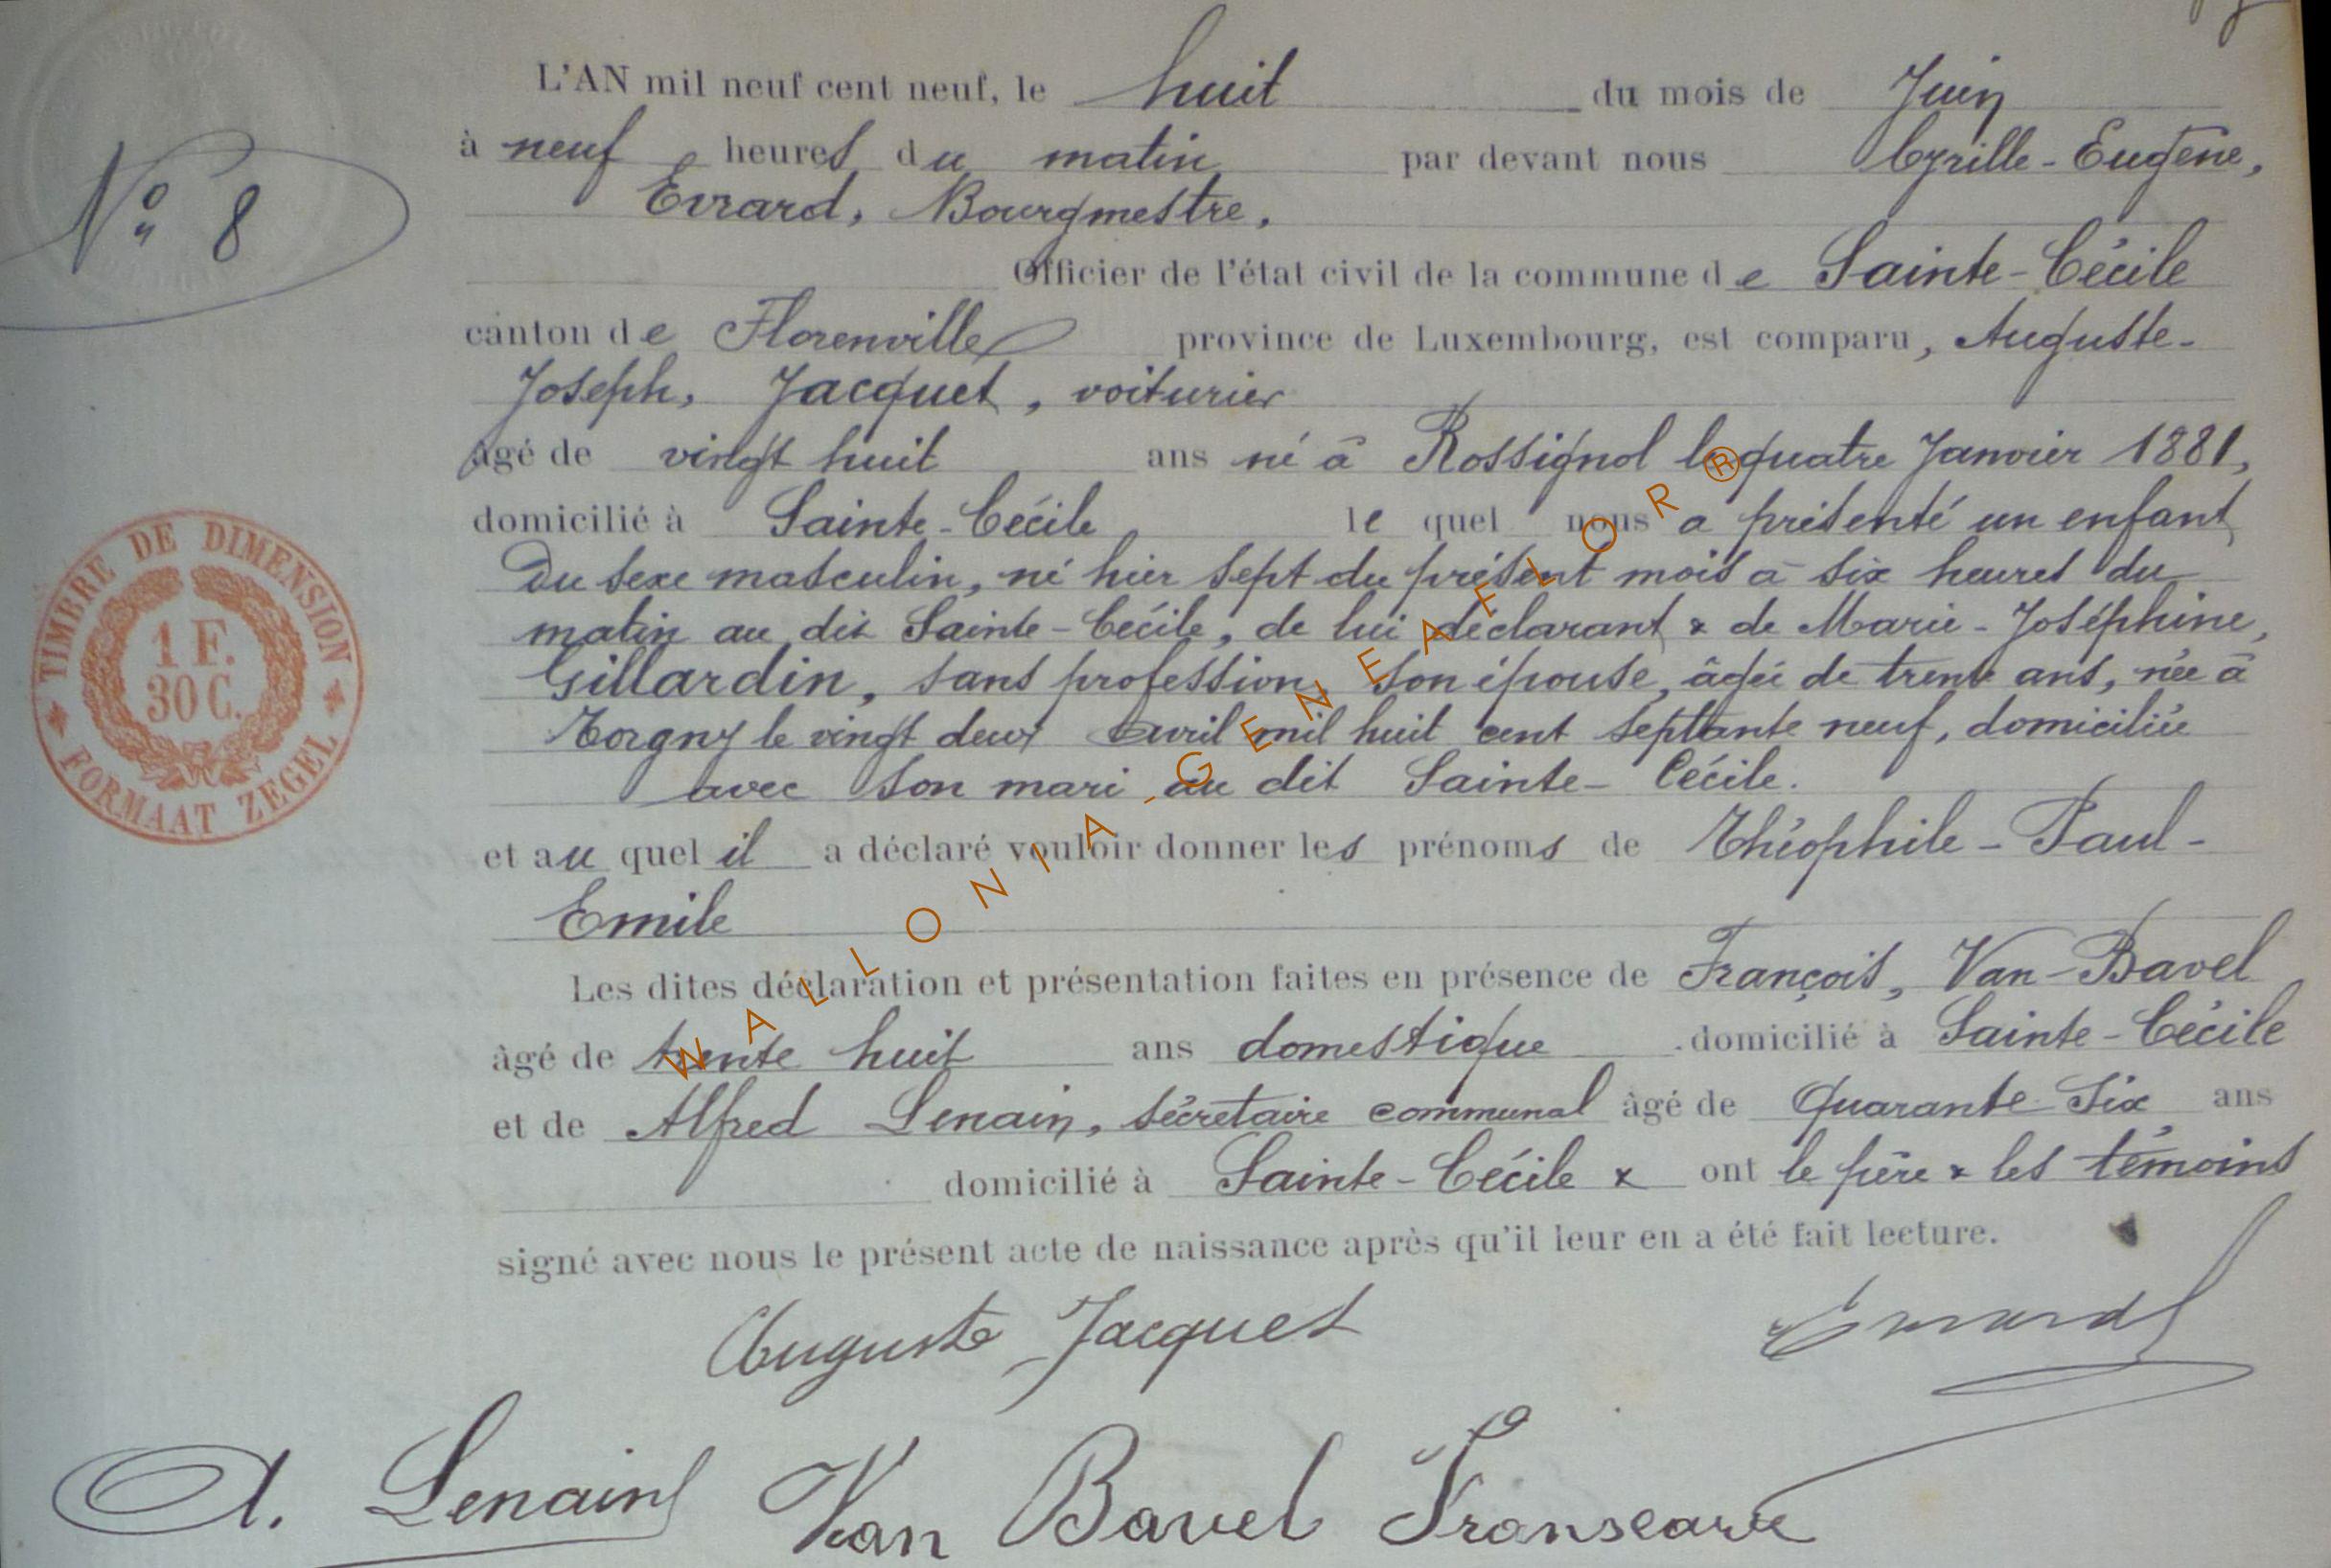 L'AN mil neuf cent neuf, le huit du mois de Juin
à neuf heures du matin par devant nous Cyrille-Eugène,
Evrard, Bourgmestre,
N° 8
Officier de l'état civil de la commune de Sainte-Cécile
canton de Florenville province de Luxembourg, est comparu, Auguste-
Joseph, Jacquet, voiturier
âgé de vingt huit ans né à Rossignol le quatre Janvier 1881,
domicilié à Sainte-Cécile le quel nous a présenté un enfant
Du sexe masculin, né hier sept du présent mois à six heures du
matin au dit Sainte-Cécile, de lui déclarant & de Marie-Joséphine,
Gillardin, sans profession, son épouse, âgée de trente ans, née à
Torgny le vingt deux avril mil huit cent septante neuf, domiciliée
avec son mari au dit Sainte-Cécile.
TIMBRE DE DIMENSION
1 F.
30 C.
FORMAAT ZEGEL
et au quel il a déclaré vouloir donner les prénoms de Théophile-Paul-
Emile
Les dites déclaration et présentation faites en présence de François, Van-Bavel
âgé de trente huit ans domestique domicilié à Sainte-Cécile
et de Alfred Lenain, sécretaire communal âgé de Quarante Six ans
domicilié à Sainte-Cécile & ont le père & les témoins
signé avec nous le présent acte de naissance après qu'il leur en a été fait lecture.
Auguste Jacquet Evrard
A. Lenain Van Bavel
WALLONIA-GENEAFLOR®